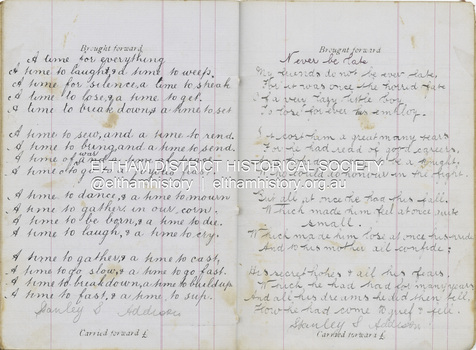 Brought forward
A time for everything
A time to laugh, & a time to weep,
A time for silence, a time to speak
A time to lose, & a time to get.
A time to break down, & a time to set
A time to sew, and a time to rend.
A time to bring, and a time to send.
A time of war
A time to get
A time to dance, & a time to mourn
A time to gather in our corn.
A time to be born, & a time to die.
A time to laugh, & a time to cry.
A time to gather, & a time to cast,
A time to go slow, & a time to go fast.
A time to break down, a time to build up
A time to fast, & a time to sup.
Stanley S Addison
Carried forward £
Brought forward
Never be late
My friends do not be ever late
For it was once the horrid fate
Of a very lazy little boy
To lose for ever his employ.
It cost him a great many tears
For he had read of good
be a knight,
in the fight.
But all at once he had his fall.
Which made him feel at once quite
small.
Which made him lose at once his pride
And to his mother all confide.
His secret hopes & all his fears.
Which he had had for many years
And all his dreams he did then tell.
How he had come to grief & fell.
Stanley S Addison
Carried forward £
ELTHAM DISTRICT HISTORICAL SOCIETY
@elthamhistory elthamhistory.org.au